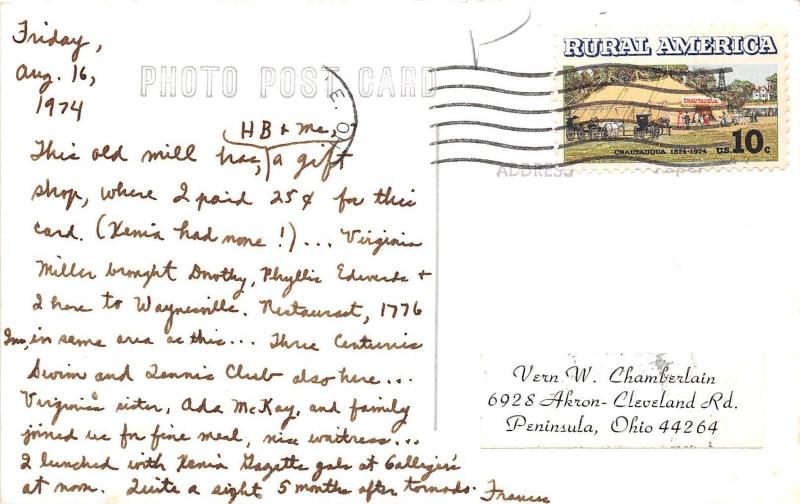 Friday,
Aug. 16,
1974
PHOTO POST CARD
HB & me,
This old mill has, a gift
shop, where I paid 25¢ for this
card. (Xenia had none!)... Virginia
Miller brought Dorothy, Phyllis Edwards +
I here to Waynesville. Restaurant, 1776
Inn, in same area as this... Three Centuries
Swim and Tennis Club also here...
Virginia's sister, Ada McKay, and family
joined us for fine meal, nice waitress...
I lunched with Xenia Gazette gals at Galligher's
at noon. Quite a sight 5 months after tornado. Frances
RURAL AMERICA
CHAUTAUQUA
CHAUTAUQUA 1874-1974 U.S. 10c
ADDRESS
Vern W. Chamberlain
6928 Akron-Cleveland Rd.
Peninsula, Ohio 44264